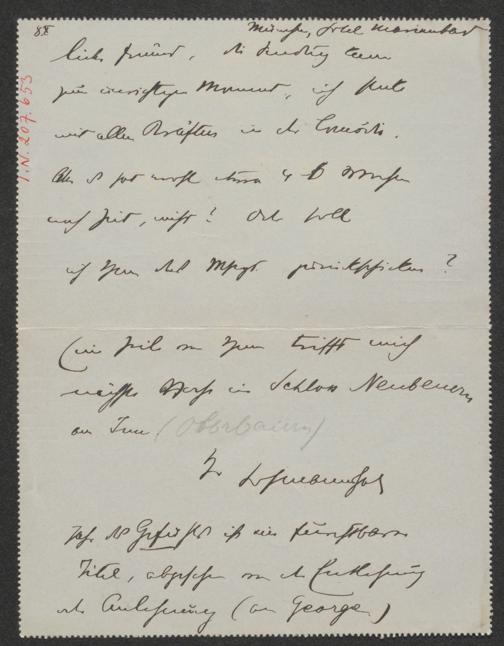 88
München, Hotel Marienbad
lieber Freund, die Sendung kam
zum unrichtigen Moment, ich stecke
mit allen Kräften in der Comödie.
Aber es hat wohl etwa 4 Wochen
noch Zeit, nicht? Oder soll
ich Ihnen das Mscpt zurückschicken?
Eine Zeile von Ihnen trifft mich
nächste Woche in Schloss Neubeuern
am Inn (Oberbaiern)
Ihr Hofmannsthal
Jahr der ist ein furchtbarer
Titel, abgesehen von der Entlehnung
oder Anlehnung (an George)
I.N. 207.653